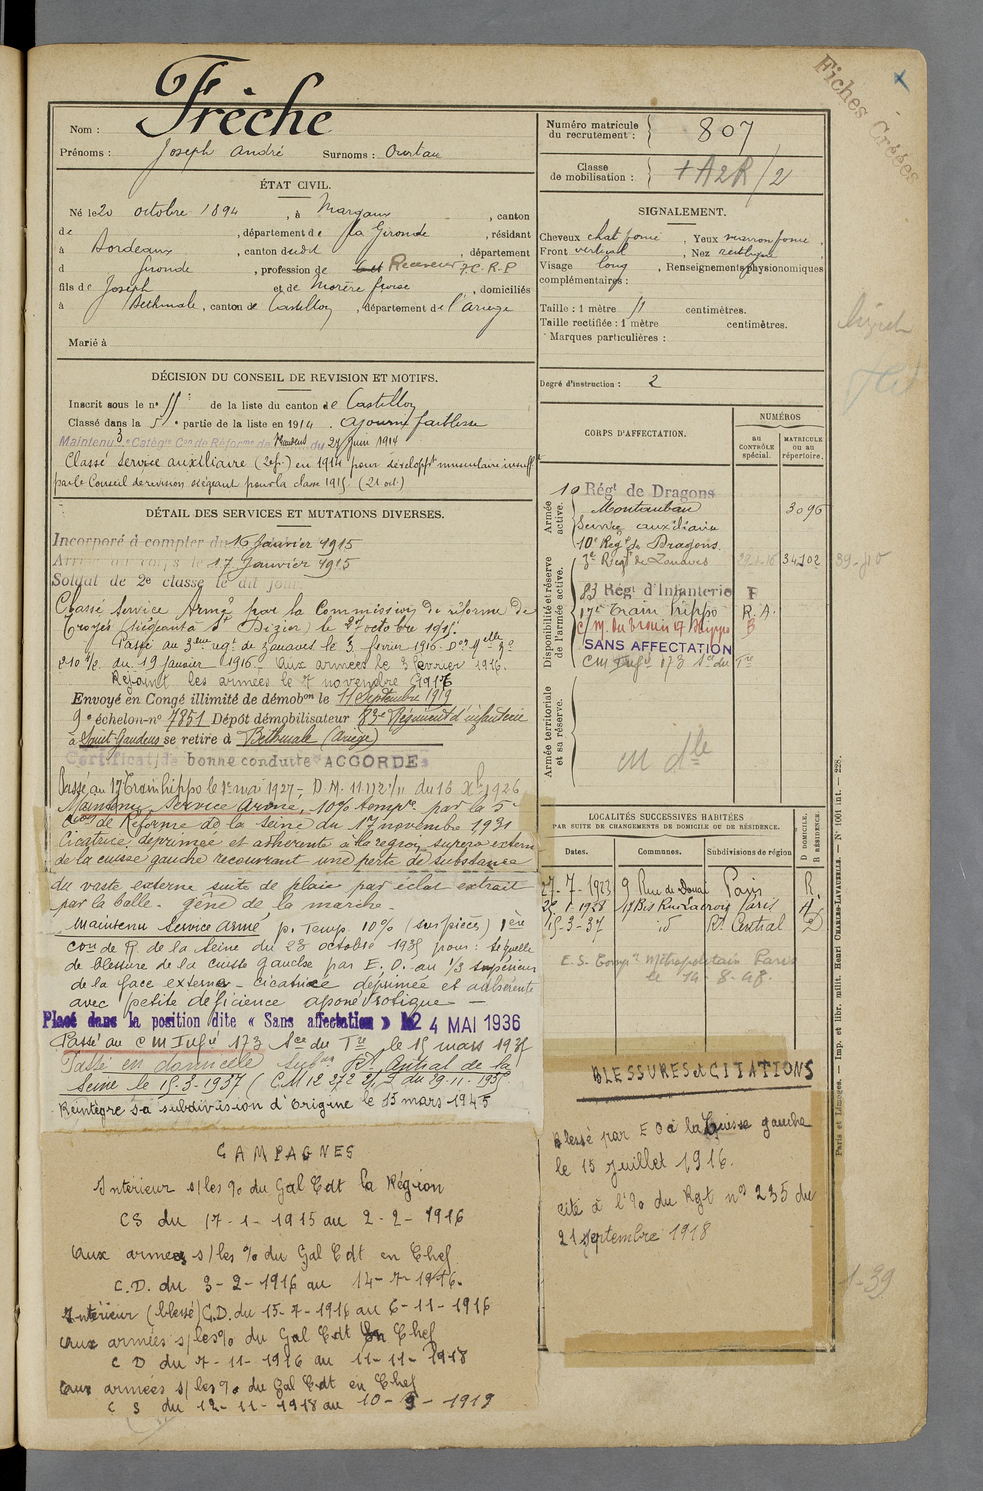 Frèche
Nom :
Prénoms : Joseph André Surnoms : Ourtau
Numéro matricule du recrutement : 807
Classe de mobilisation : + A2R/2
Fiches Créées
ÉTAT CIVIL.
Né le 20 octobre 1894, à Margaux, canton
de , département de la Gironde, résidant
à Bordeaux, canton dudit, département
d Gironde, profession de Receveur T.C.R.P
fils de Joseph et de Morère , domiciliés
à Bethmale, canton de Castillon, département de l'Ariège
Marié à
SIGNALEMENT.
Cheveux chat foncé, Yeux marron foncé,
Front vertical, Nez rectiligne
Visage long, Renseignements physionomiques
complémentaires :
Taille : 1 mètre 51 centimètres.
Taille rectifiée : 1 mètre centimètres.
Marques particulières :
Degré d'instruction : 2
DÉCISION DU CONSEIL DE REVISION ET MOTIFS.
Inscrit sous le n° 55 de la liste du canton de Castillon
Classé dans la 5e partie de la liste en 1914. Ajourné faiblesse
Maintenu 3e Catégie Con de Réforme de du 24 Juin 1914
Classé service auxiliaire (2e p.) en 1914 pour développt musculaire insuff
par le Conseil de revision siégeant pour la classe 1915. (21 oct.)
DÉTAIL DES SERVICES ET MUTATIONS DIVERSES.
Incorporé à compter du 16 Janvier 1915
Arrivé au corps le 17 Janvier 1915
Soldat de 2e classe le dit jour
Classé Service Armé par la Commission de réforme de
Troyes (siégeant à St Dizier) le 2 octobre 1915.
Passé au 3ème regt de zouaves le 3 février 1916. Don Melle N°
du 19 Janvier 1916 - Aux armées le 3 février 1916.
Rejoint les armées le 7 novembre 1916
Envoyé en Congé illimité de démobon le 11 Septembre 1919
9e échelon-n° 7851 Dépôt démobilisateur 83e Régiment d'infanterie
à Saint-Gaudens se retire à Bethmale (Ariège)
Certificat de bonne conduite ACCORDÉ
Passé au 17 Train hippo le 1er mai 1927 - D.M. 11.192 1/11 du 16 Xbre 1926
Maintenu Service Armé, 10% tempre par la 5e
Con de Réforme de la Seine du 17 novembre 1931
Cicatrice déprimée et adhérente à la région supero externe
de la cuisse gauche recouvrant une perte de substance
du vaste externe suite de plaie par éclat extrait
par la balle - gêne de la marche -
Maintenu Service armé p. Temp. 10% (sur pièces) 1ère
Con de R. de la Seine du 23 octobre 1935 pour : Séquelle
de blessure de la cuisse gauche par E. O. au 1/3 supérieur
de la face externe - cicatrice déprimée et adhérente
avec petite déficience aponévrotique -
Placé dans la position dite « Sans affectation » le 24 MAI 1936
Passé au C M Infie 173 Sce du Tre le 15 mars 1935
Passé en domicile Subon Rt Central de la
Seine le 15-3-1937 (C M 12 272 2/5 2 du 29-11-1935
Réintègre sa subdivision d'origine le 15 mars 1945
CORPS D'AFFECTATION.
NUMÉROS
AU CONTRÔLE spécial.
MATRICULE OU AU répertoire.
Armée active.
10 Régt de Dragons
Montauban 3096
Service auxiliaire
10e Regt de Dragons.
3e Regt de Zouaves 34102
Disponibilité et réserve de l'armée active.
83 Régt d'Infanterie F
17e Train hippo R.A.
C/M. du train 17 Hippo B
SANS AFFECTATION
CM Infie 173 Sce du Tre
Armée territoriale et sa réserve.
M dle
LOCALITÉS SUCCESSIVES HABITÉES
PAR SUITE DE CHANGEMENTS DE DOMICILE OU DE RÉSIDENCE.
Dates. Communes. Subdivisions de région D DOMICILE. R RÉSIDENCE.
27-7-1923 9 Rue de Douai Paris R.
1928 17 Bis Rue Lacroix Paris
15-3-37 id Rt Central D
E.S. Compie Métropolitain Paris
le 14-8-48.
BLESSURES et CITATIONS
Blessé par E O à la Cuisse gauche
le 15 juillet 1916.
cité à l'% du Rgt n° 235 du
21 septembre 1918
1-39
CAMPAGNES
Intérieur s/les % du Gal Cdt la Région
CS du 17-1-1915 au 2-2-1916
Aux armées s/les % du Gal Cdt en Chef
C.D. du 3-2-1916 au 14-7-1916.
Intérieur (blessé) C.D. du 15-7-1916 au 6-11-1916
Aux armées s/les % du Gal Cdt en Chef
C D du 7-11-1916 au 11-11-1918
Aux armées s/les % du Gal Cdt en Chef
C S du 12-11-1918 au 10-9-1919
Paris et Limoges. — Imp. et libr. milit. Henri CHARLES-LAVAUZELLE. — N° 1001 int. — 228.